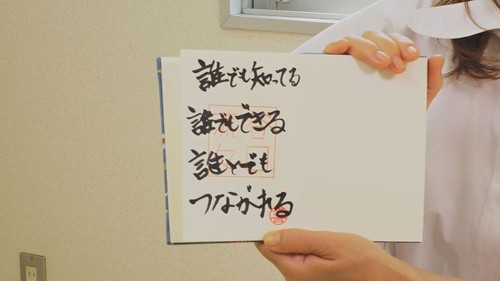 誰でも知ってる
誰でもできる
誰とでも
つながれる